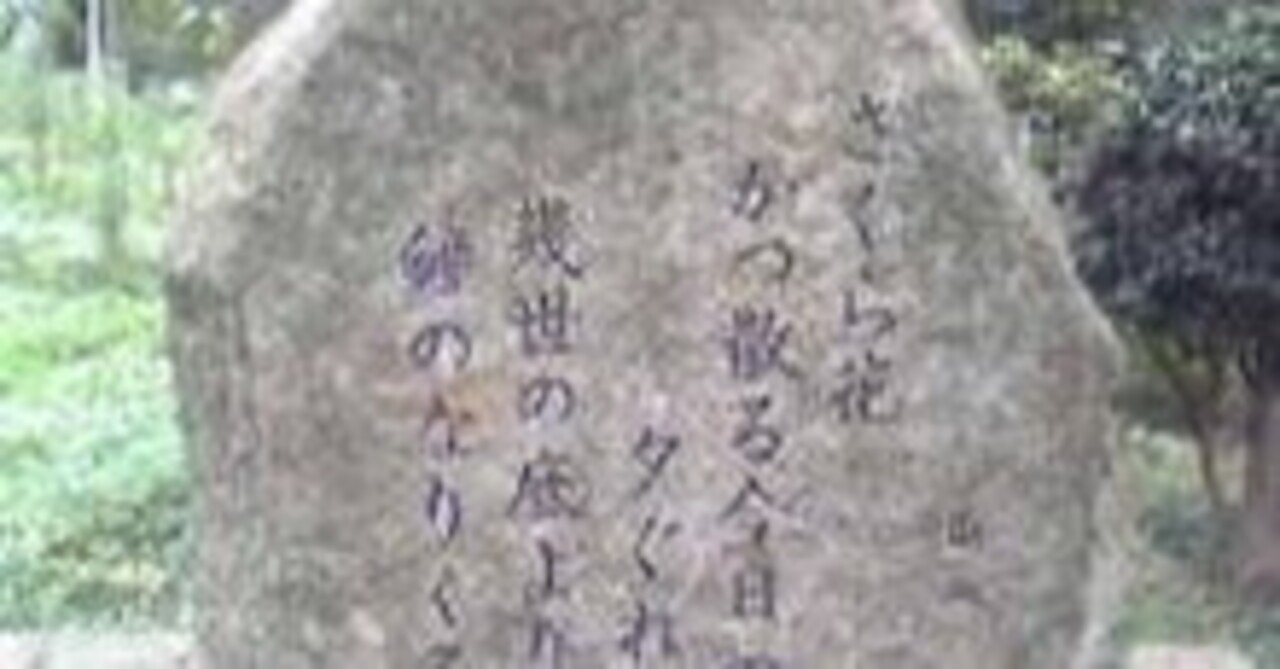 さくら花
かつ散る今日の
夕ぐれ
幾世の底より
鐘のなりくる